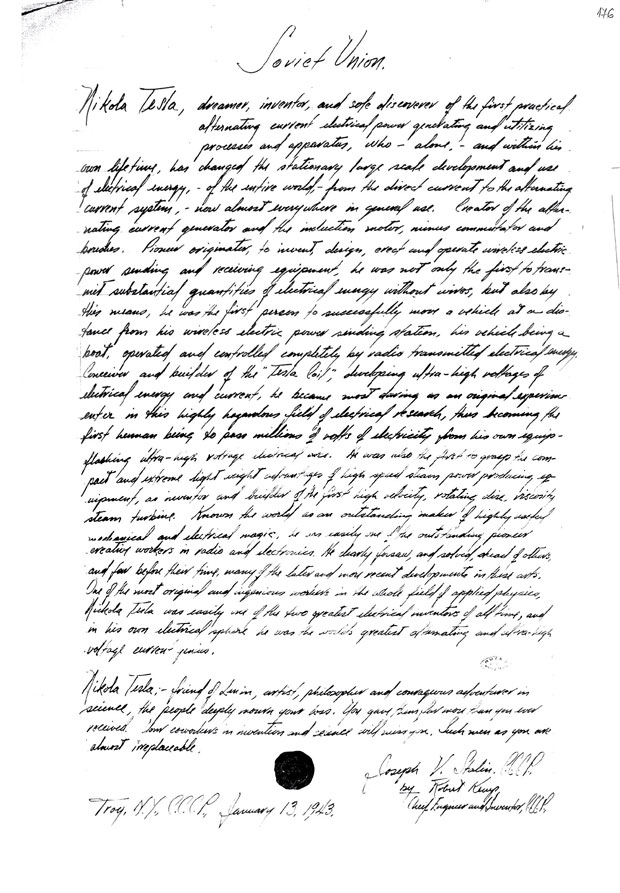 176
Soviet Union.
Nikola Tesla, dreamer, inventor, and sole discoverer of the first practical
alternating current electrical power generating and utilizing
processes and apparatus, who - alone, - and within his
own lifetime, has changed the stationary large scale development and use
of electrical energy, - of the entire world, - from the direct current to the alternating
current system, - now almost everywhere in general use. Creator of the alter-
nating current generator and the induction motor, minus commutator and
brushes. Pioneer originator, to invent, design, erect and operate wireless electric
power sending and receiving equipment, he was not only the first to trans-
mit substantial quantities of electrical energy without wires, but also by
this means, he was the first person to successfully move a vehicle at a dis-
tance from his wireless electric power sending station, his vehicle being a
boat, operated and controlled completely by radio transmitted electrical energy.
Conceiver and builder of the "Tesla Coil", developing ultra-high voltages of
electrical energy and current, he became most daring as an original experime
enter in this highly hazardous field of electrical research, thus becoming the
first human being to pass millions of volts of electricity from his own equip-
flashing ultra-high voltage electrical arcs. He was also the first to grasp the com-
pact and extreme light weight advantages of high speed steam power producing eq-
uipment, as inventor and builder of the first high velocity, rotating disc, viscosity
steam turbine. Known the world as an outstanding maker of highly useful
mechanical and electrical magic, he was easily one of the outstanding pioneer
creative workers in radio and electronics. He clearly forsaw, and solved, ahead of others,
and far before their time, many of the later and more recent developments in these arts.
One of the most original and ingenious workers in the whole field of applied physics,
Nikola Tesla was easily one of the two greatest electrical inventors of all time, and
in his own electrical sphere he was the world's greatest alternating and ultra-high
voltage current genius.
Nikola Tesla; - friend of Lenin, artist, philosopher and courageous adventurer in
science, the people deeply mourn your loss. You gave them far more than you ever
received. Your coworkers in invention and science will miss you. Such men as you are
almost irreplaceable.
Joseph V. Stalin, C.C.C.P.
by Robert Kemp,
Chief Engineer and Inventor, C.C.C.P.
Troy, N.Y., C.C.C.P., January 13, 1943.